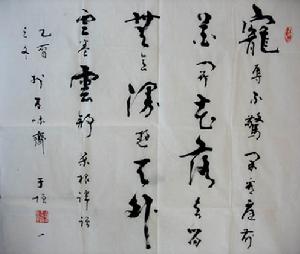 寵辱不驚閑看庭前
花開花落去留
無意漫隨天外
雲卷雲舒 菜根譚語